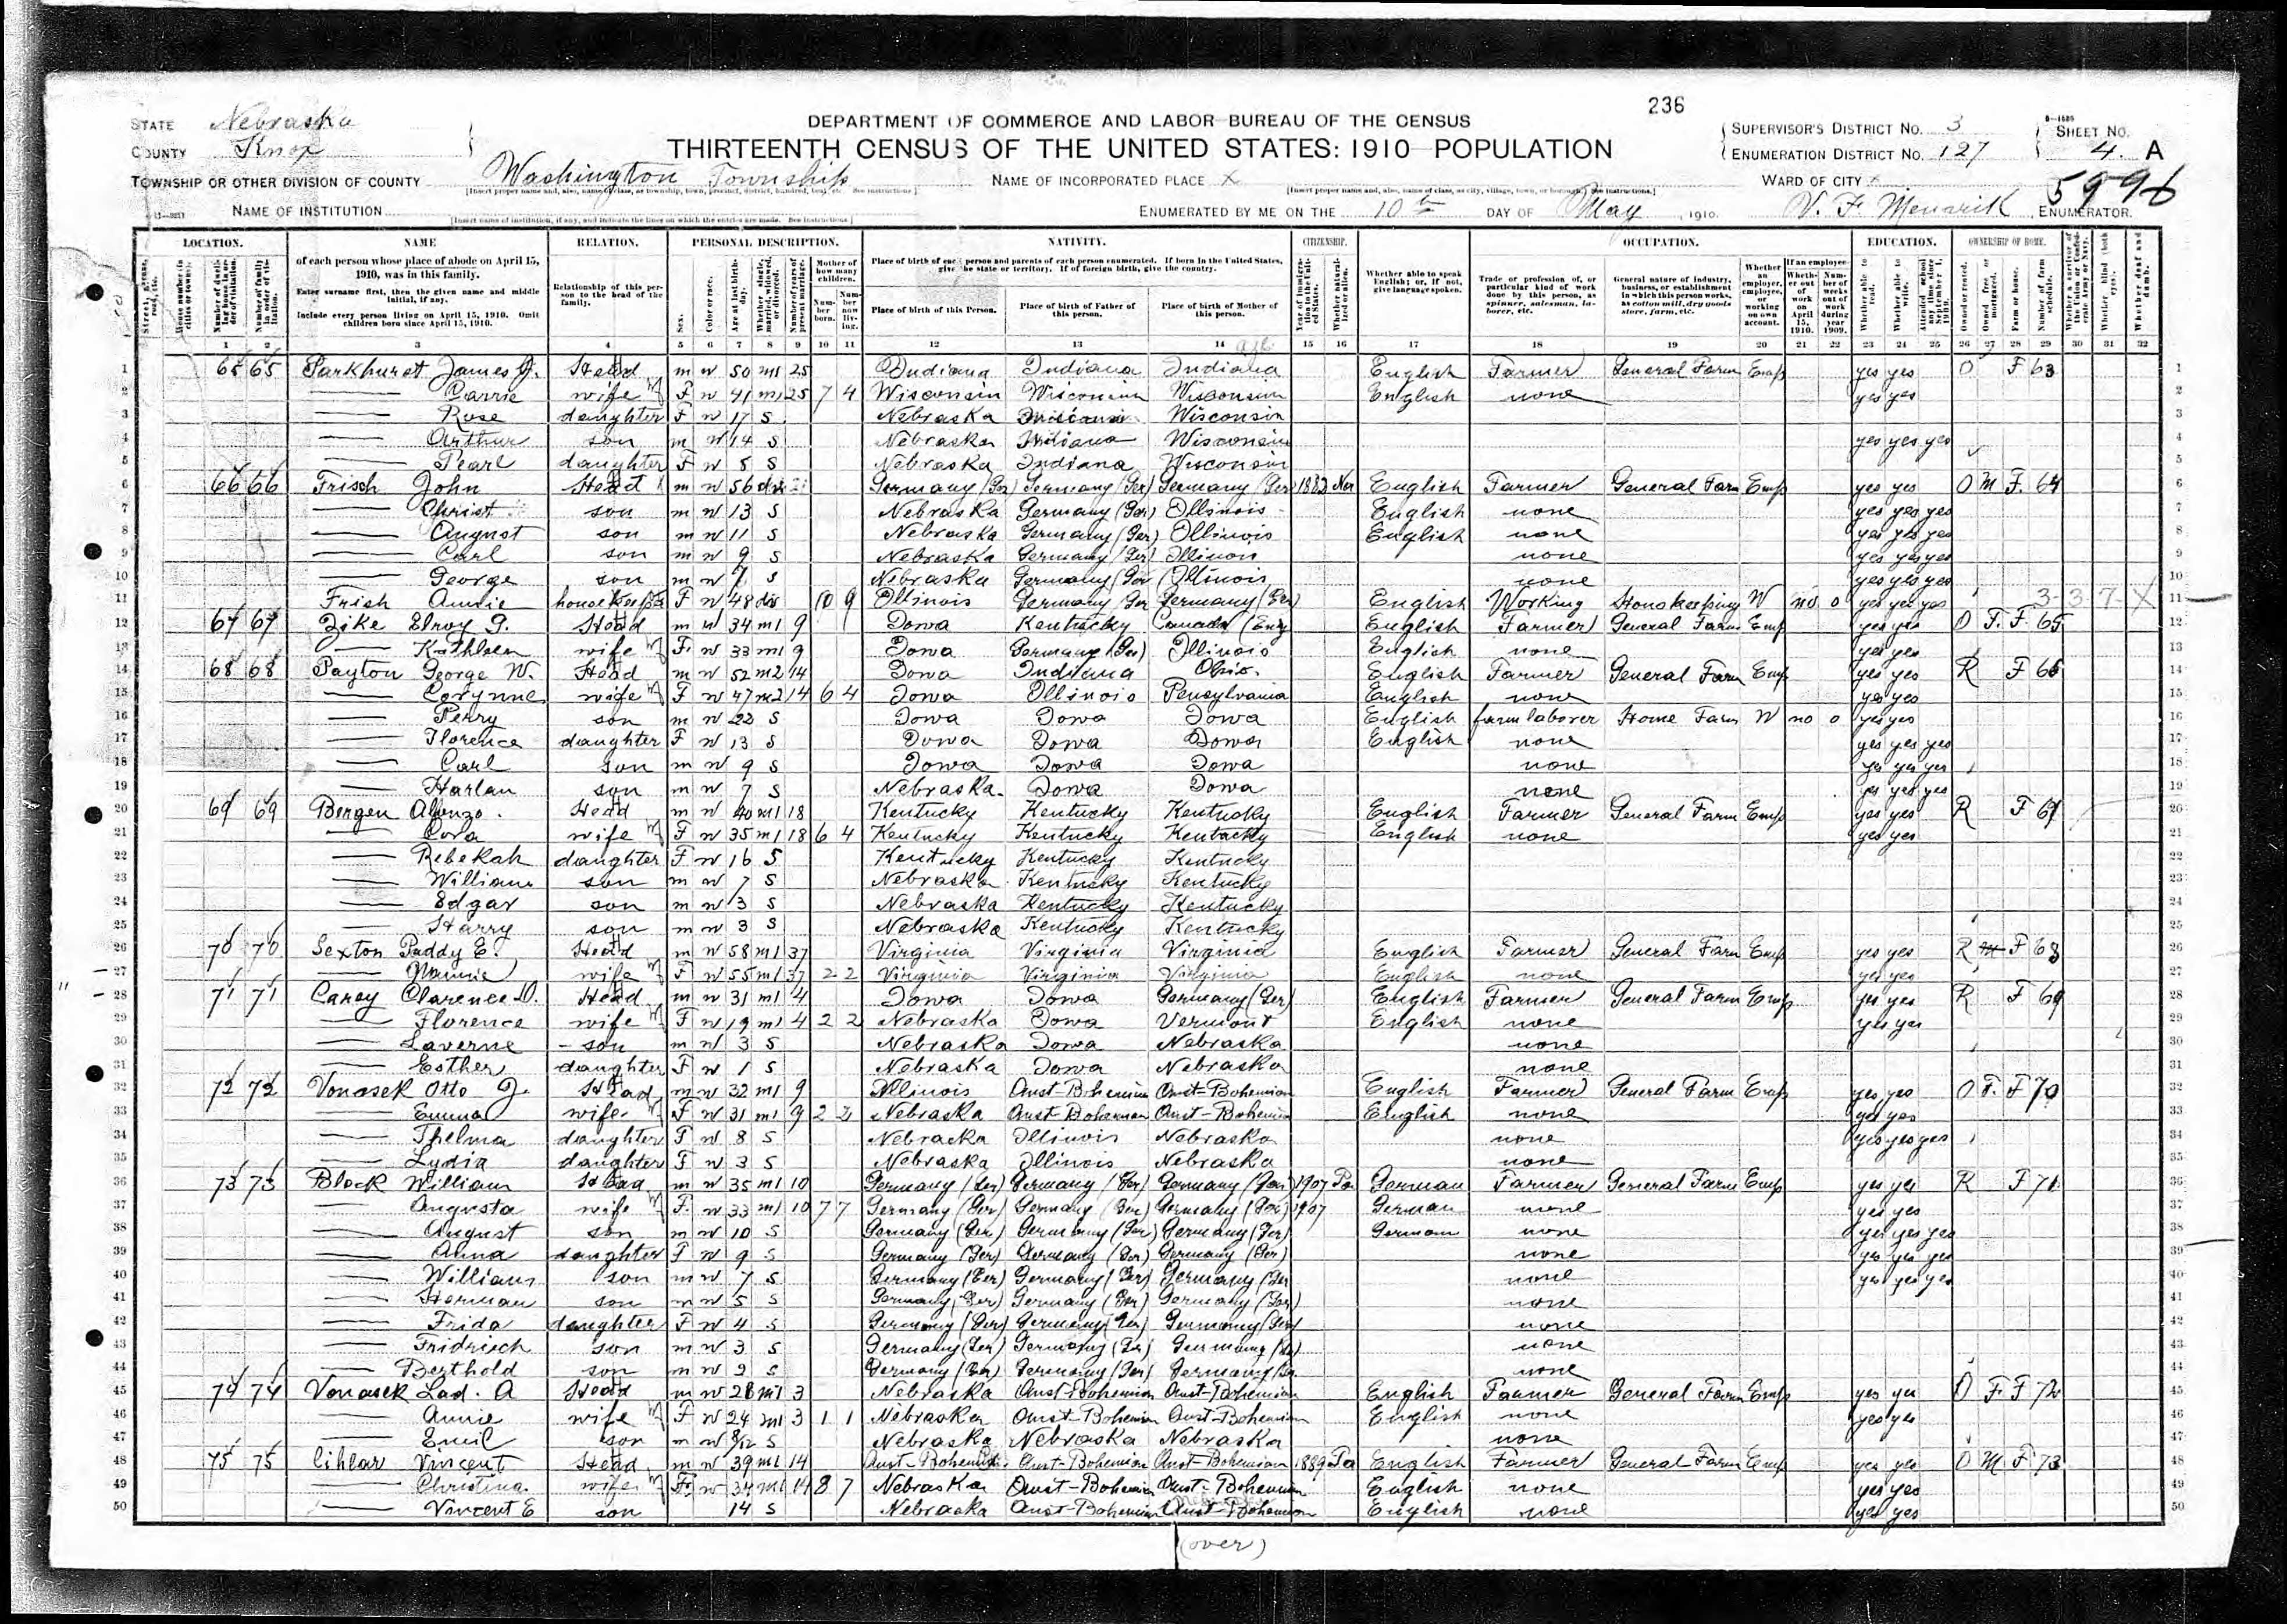 236
STATE Nebraska
COUNTY Knox
DEPARTMENT OF COMMERCE AND LABOR-BUREAU OF THE CENSUS
THIRTEENTH CENSUS OF THE UNITED STATES: 1910 POPULATION
SUPERVISOR'S DISTRICT NO. 3
ENUMERATION DISTRICT NO. 127
SHEET NO. 4 A
TOWNSHIP OR OTHER DIVISION OF COUNTY Washington Township
NAME OF INCORPORATED PLACE X
WARD OF CITY X
NAME OF INSTITUTION
ENUMERATED BY ME ON THE 10th DAY OF May, 1910.
V. F. Mensik, ENUMERATOR.
LOCATION. NAME RELATION. PERSONAL DESCRIPTION. NATIVITY. CITIZENSHIP. OCCUPATION. EDUCATION. OWNERSHIP OF HOME.
of each person whose place of abode on April 15, 1910, was in this family.
Enter surname first, then the given name and middle initial, if any.
Include every person living on April 15, 1910. Omit children born since April 15, 1910.
Relationship of this person to the head of the family.
Place of birth of each person and parents of each person enumerated. If born in the United States, give the state or territory. If of foreign birth, give the country.
Place of birth of this Person. Place of birth of Father of this person. Place of birth of Mother of this person.
Whether able to speak English; or, if not, give language spoken.
1 2 3 4 5 6 7 8 9 10 11 12 13 14 15 16 17 18 19 20 21 22 23 24 25 26 27 28 29 30 31 32
1 65 65 Parkhurst James J. Head m w 50 m1 25 Indiana Indiana Indiana English Farmer General Farm Emp yes yes O F 63
2 Carrie wife F w 41 m1 25 7 4 Wisconsin Wisconsin Wisconsin English none yes yes
3 Rose daughter F w 17 S Nebraska Wisconsin
4 Arthur son m w 14 S Nebraska Indiana Wisconsin yes yes yes
5 Pearl daughter F w 5 S Nebraska Indiana Wisconsin
6 66 66 Frisch John Head m w 56 Germany (Ger) Germany (Ger) Germany (Ger) 1882 Na English Farmer General Farm Emp yes yes O M F. 64
7 Christ son m w 13 S Nebraska Germany (Ger) Illinois English none yes yes yes
8 August son m w 11 S Nebraska Germany (Ger) Illinois English none yes yes yes
9 Carl son m w 9 S Nebraska Germany (Ger) Illinois none yes yes yes
10 George son m w 7 S Nebraska Germany (Ger) Illinois none yes yes yes
11 Frish Annie housekeeper F w 48 div 10 9 Illinois Germany (Ger) Germany (Ger) English Working Houskeeping W no 0 yes yes yes 3-3-7-X
12 67 67 Zike Elroy G. Head m w 34 m1 9 Iowa Kentucky Canada (Eng English Farmer General Farm Emp yes yes O F. F. 65
13 Kathleen wife F. w 33 m1 9 Iowa Germany (Ger) Illinois English none yes yes
14 68 68 Payton George W. Head m w 52 m2 14 Iowa Indiana Ohio. English Farmer General Farm Emp yes yes R F 66
15 Corynne wife F w 47 m2 14 6 4 Iowa Illinois Pensylvania English none yes yes
16 Perry son m w 22 S Iowa Iowa Iowa English farm laborer Home Farm W no 0 yes yes
17 Florence daughter F w 13 S Iowa Iowa Iowa English none yes yes yes
18 Carl son m w 9 S Iowa Iowa Iowa none yes yes yes
19 Harlan son m w 7 S Nebraska Iowa Iowa none yes yes yes
20 69 69 Bergen Alfonzo. Head m w 40 m1 18 Kentucky Kentucky Kentucky English Farmer General Farm Emp yes yes R F 67
21 Cora wife F w 35 m1 18 6 4 Kentucky Kentucky Kentucky English none yes yes
22 Rebekah daughter F w 16 S Kentucky Kentucky Kentucky
23 William son m w 7 S Nebraska Kentucky Kentucky
24 Edgar son m w 3 S Nebraska Kentucky Kentucky
25 Harry son m w 3 S Nebraska Kentucky Kentucky
26 70 70 Sexton Paddy E. Head m w 58 m1 37 Virginia Virginia Virginia English Farmer General Farm Emp yes yes R F 68
27 Nannie wife F w 55 m1 37 2 2 Virginia Virginia Virginia English none yes yes
28 71 71 Carey Clarence D. Head m w 31 m1 4 Iowa Iowa Germany (Ger) English Farmer General Farm Emp yes yes R F 69
29 Florence wife F w 19 m1 4 2 2 Nebraska Iowa Vermont English none yes yes
30 Laverne son m w 3 S Nebraska Iowa Nebraska none
31 Esther daughter F w 1 S Nebraska Iowa Nebraska none
32 72 72 Vonasek Otto J. Head m w 32 m1 9 Illinois Aust-Bohemian Aust-Bohemian English Farmer General Farm Emp yes yes O F. F 70
33 Emma wife F w 31 m1 9 2 2 Nebraska Aust-Bohemian Aust-Bohemian English none yes yes
34 Thelma daughter F w 8 S Nebraska Illinois Nebraska none yes yes yes
35 Lydia daughter F w 3 S Nebraska Illinois Nebraska none
36 73 73 Block William Head m w 35 m1 10 Germany (Ger) Germany (Ger) Germany (Ger) 1907 Pa German Farmer General Farm Emp yes yes R F 71
37 Augusta wife F. w 33 m1 10 7 7 Germany (Ger) Germany (Ger) Germany (Ger) 1907 German none yes yes
38 August son m w 10 S Germany (Ger) Germany (Ger) Germany (Ger) German none yes yes yes
39 Anna daughter F w 9 S Germany (Ger) Germany (Ger) Germany (Ger) none yes yes yes
40 William son m w 7 S Germany (Ger) Germany (Ger) Germany (Ger none yes yes yes
41 Herman son m w 5 S Germany (Ger) Germany (Ger) Germany (Ger) none
42 Frida daughter F w 4 S Germany (Ger) Germany (Ger) Germany (Ger) none
43 Fridrich son m w 3 S Germany (Ger) Germany (Ger) Germany (Ger) none
44 Berthold son m w S Germany (Ger) Germany (Ger) Germany (Ger none
45 74 74 Vonasek Lad. A Head m w 28 m1 3 Nebraska Aust-Bohemian Aust-Bohemian English Farmer General Farm Emp yes yes O F. F 72
46 Annie wife F w 24 m1 3 1 1 Nebraska Aust-Bohemian Aust-Bohemian English none yes yes
47 Emil son m w 8/12 S Nebraska Nebraska Nebraska none
48 75 75 Cihlar Vincent Head m w 39 m1 14 Aust-Bohemian Aust-Bohemian Aust-Bohemian 1889 Pa English Farmer General Farm Emp yes yes O M F 73
49 Christina wife F. w 34 m1 14 8 7 Nebraska Aust-Bohemian Aust-Bohemian English none yes yes
50 Vincent E son 14 S Nebraska Aust-Bohemian Aust-Bohemian English none yes yes
(over)